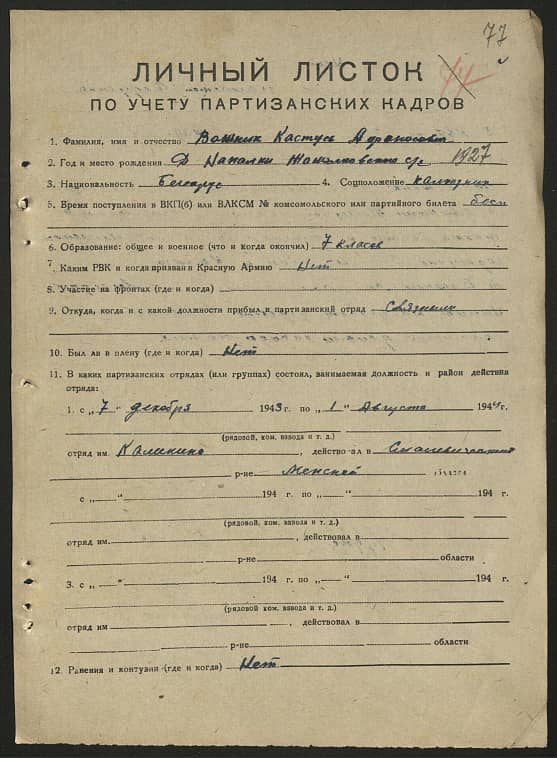 77
14
ЛИЧНЫЙ ЛИСТОК
ПО УЧЕТУ ПАРТИЗАНСКИХ КАДРОВ
1. Фамилия, имя и отчество Кастусь
2. Год и место рождения Д с/с 1927
3. Национальность Беларус 4. Соцположение
5. Время поступления в ВКП(б) или ВЛКСМ № комсомольского или партийного билета
6. Образование: общее и военное (что и когда окончил) 7 класов
7. Каким РВК и когда призван в Красную Армию Нет
8. Участие на фронтах (где и когда)
9. Откуда, когда и с какой должности прибыл в партизанский отряд
10. Был ли в плену (где и когда) Нет
11. В каких партизанских отрядах (или группах) состоял, занимаемая должность и район действия
отряда:
1. с „7" декабря 1943 г. по „1" Августа 1944 г.
(рядовой, ком. взвода и т. д.)
отряд им. Калинина, действовал в
р-не Менской области
с „ " 194 г. по „ " 194 г.
(рядовой, ком. взвода и т. д.)
отряд им. , действовал в
р-не области
3. с „ " 194 г. по „ " 194 г.
(рядовой, ком. взвода и т. д.)
отряд им , действовал в
р-не области
12. Ранения и контузии (где и когда) Нет